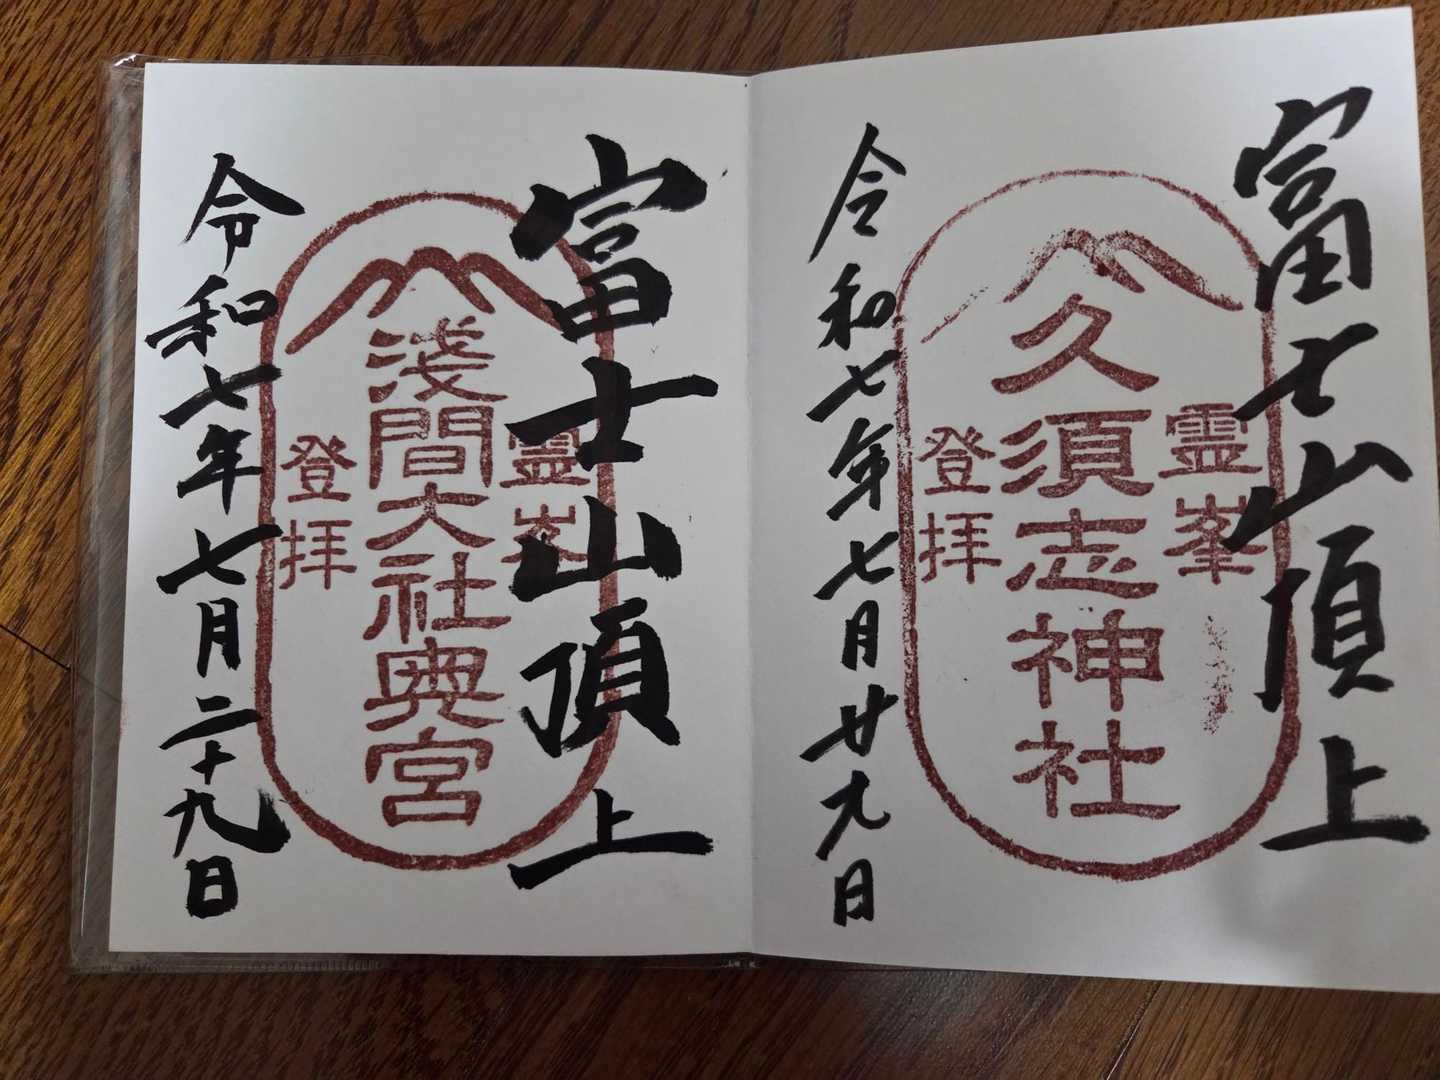 富士山頂上
霊峯
久須志神社
登拝
令和七年七月廿九日
富士山頂上
霊峯
浅間大社奥宮
登拝
令和七年七月二十九日